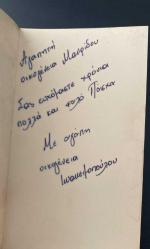 Αγαπητή
οικογένεια Μαυρίδου
Σας ευχόμαστε χρόνια
πολλά και καλό Πάσχα
Με αγάπη
οικογένεια